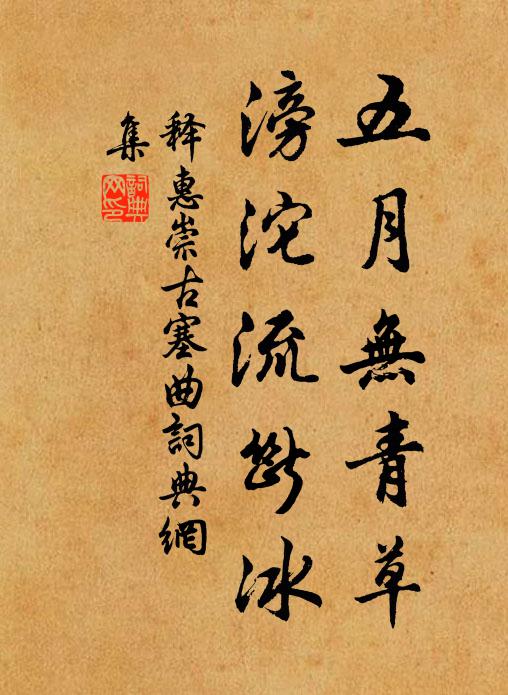 五月無青草
滂沱流斷冰
释惠崇古塞曲詞典網
集
詞典
网印